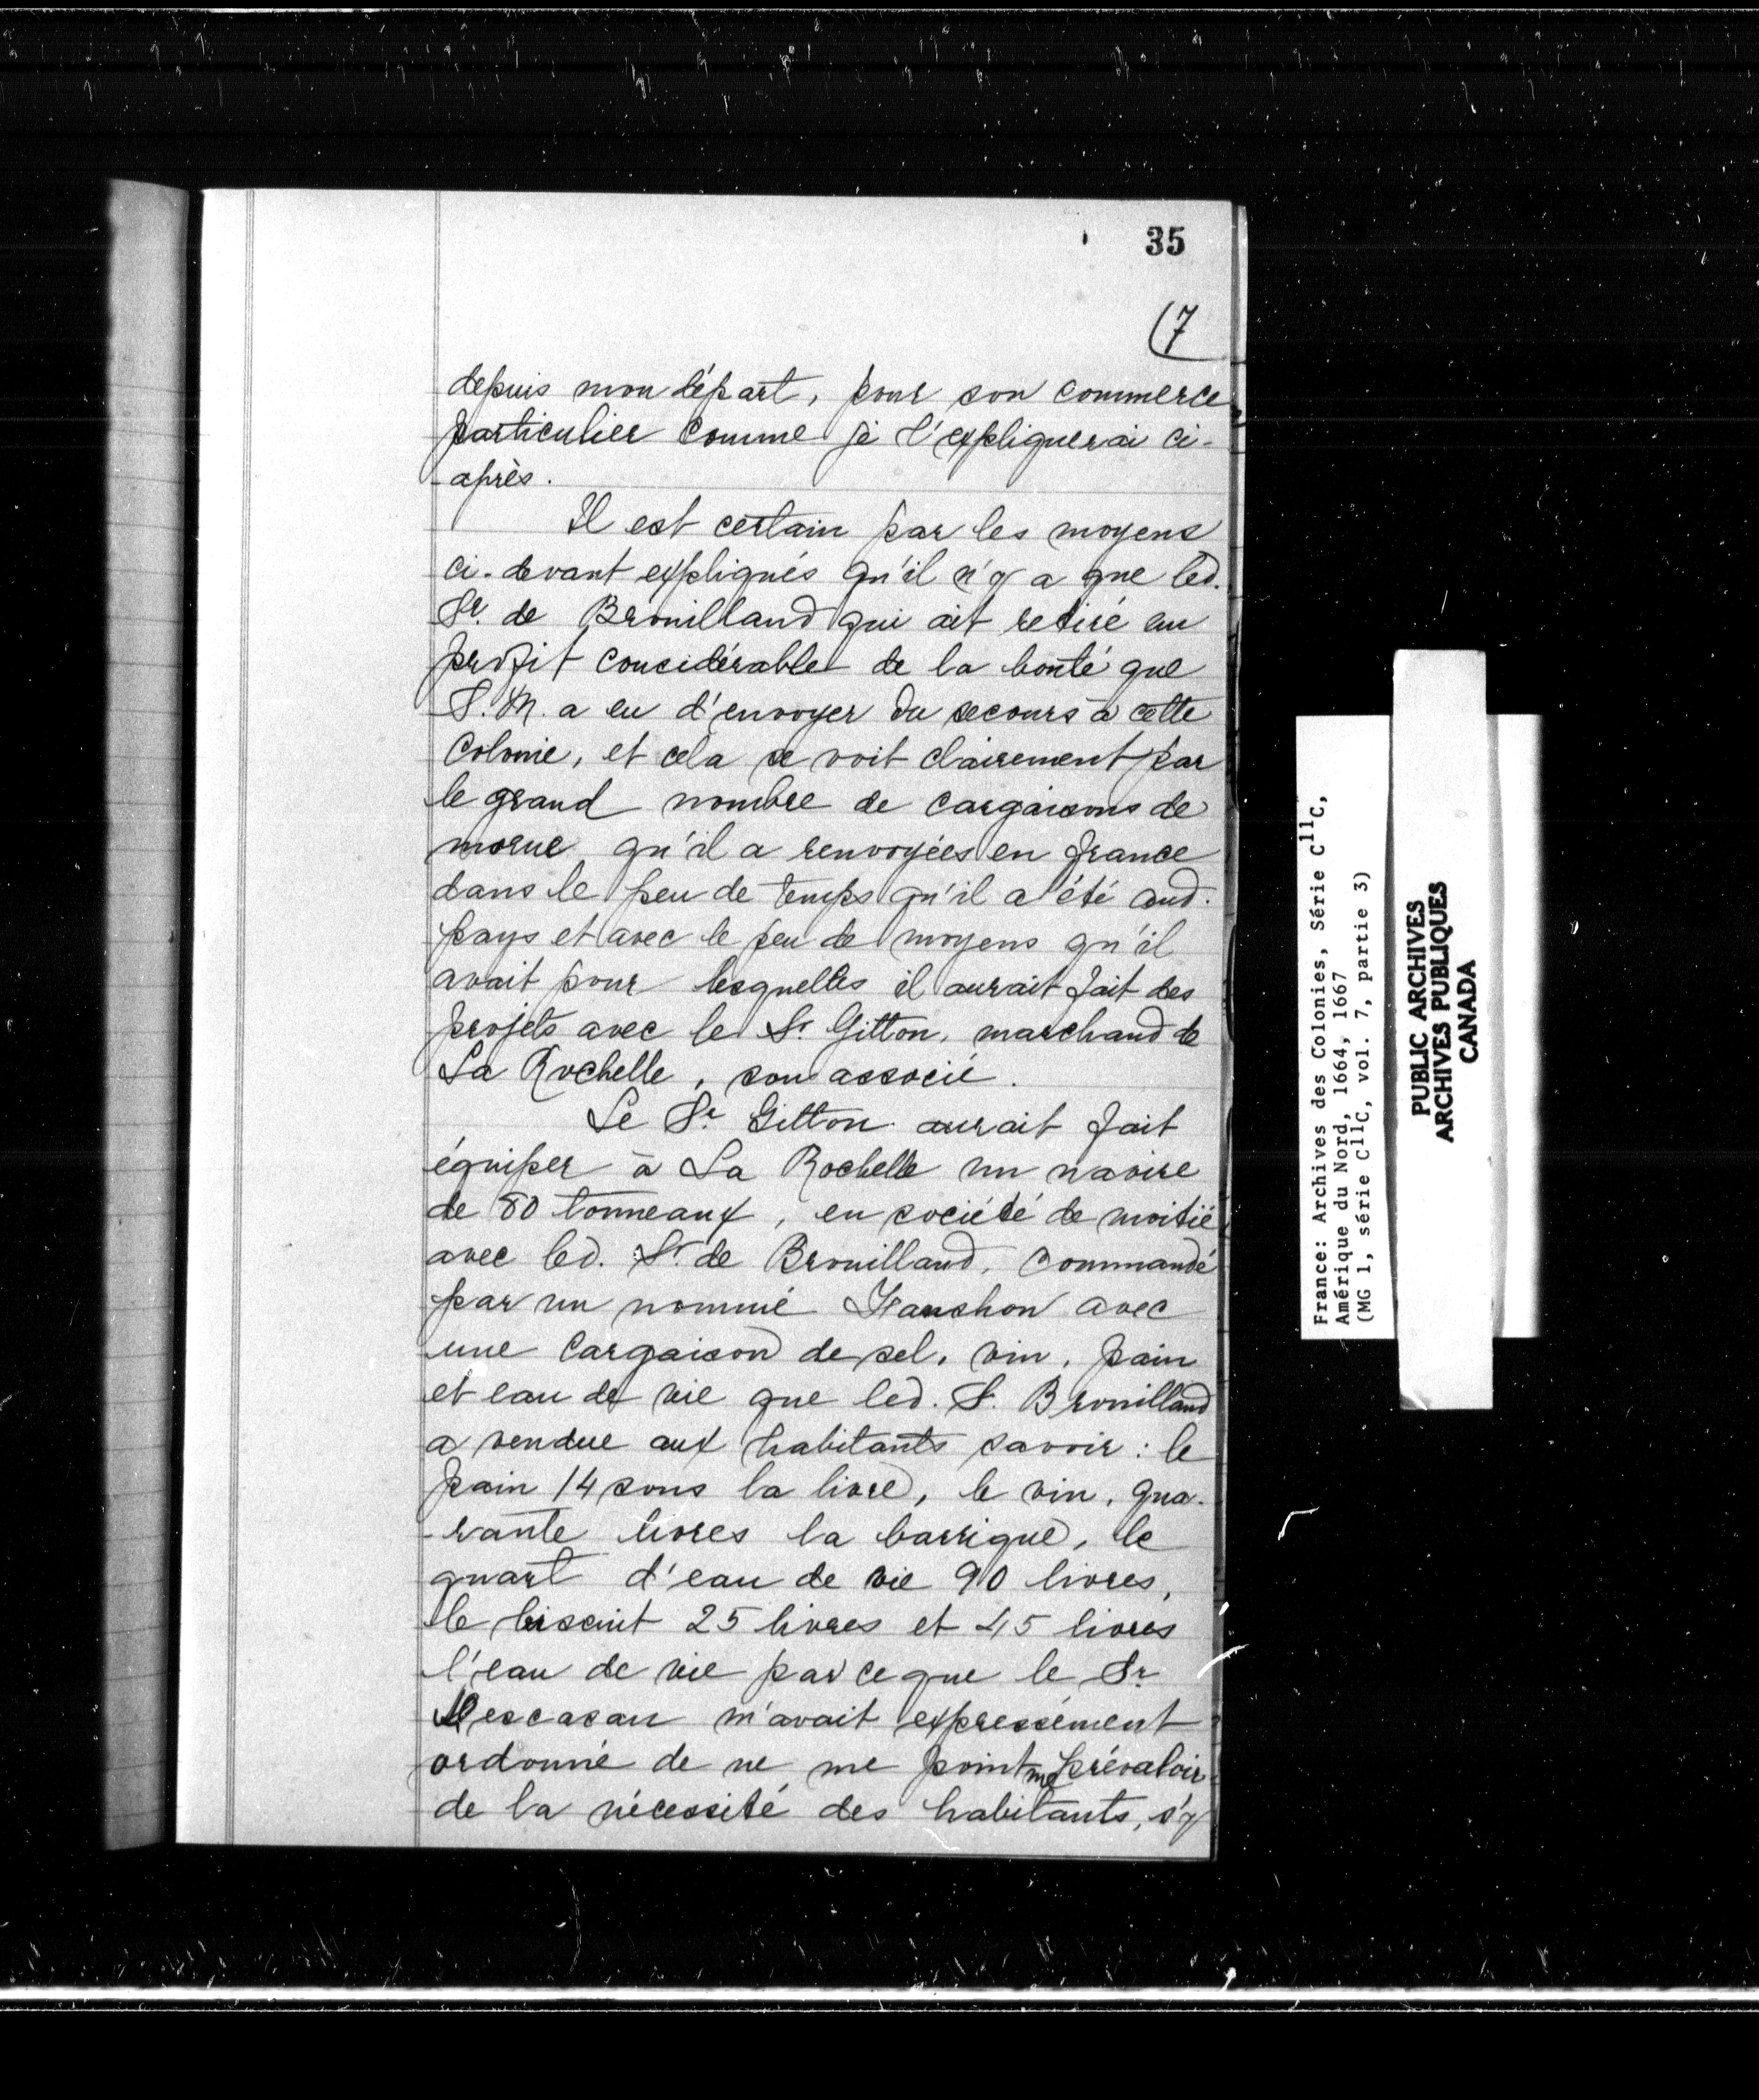 35
(7
depuis mon départ, pour son commerce
particulier comme je l'expliquerai ci-
après.
Il est certain par les moyens
ci-devant expliqués qu'il n'y a que led.
Sr. de Brouilland qui ait retiré un
profit considérable de la bonté que
S. M. a eu d'envoyer du secours à cette
Colonie, et cela se voit clairement par
le grand nombre de cargaisons de
morue qu'il a renvoyées en france
dans le peu de temps qu'il a été aud.
pays et avec le peu de moyens qu'il
avait pour lesquelles il aurait fait des
projets avec le Sr. Gitton, marchand de
La Rochelle, son associé.
Le Sr Gitton aurait fait
équiper à La Rochelle un navire
de 80 tonneaux, en société de moitié
avec led. Sr. de Brouilland, commandé
par un nommé avec
une cargaison de sel, vin, pain
et eau de vie que led. S. Brouilland
a vendue aux habitants savoir : le
pain 14 sous la livre, le vin, qua-
-rante livres la barrique, le
quart d'eau de vie 90 livres,
le biscuit 25 livres et 45 livres
l'eau de vie parceque le Sr
m'avait expressément
ordonné de ne me point me prévaloir
de la nécessité des habitants, s'y
France: Archives des Colonies, Série C11C,
Amérique du Nord, 1664, 1667
(MG 1, série C11C, vol. 7, partie 3)
PUBLIC ARCHIVES
ARCHIVES PUBLIQUES
CANADA